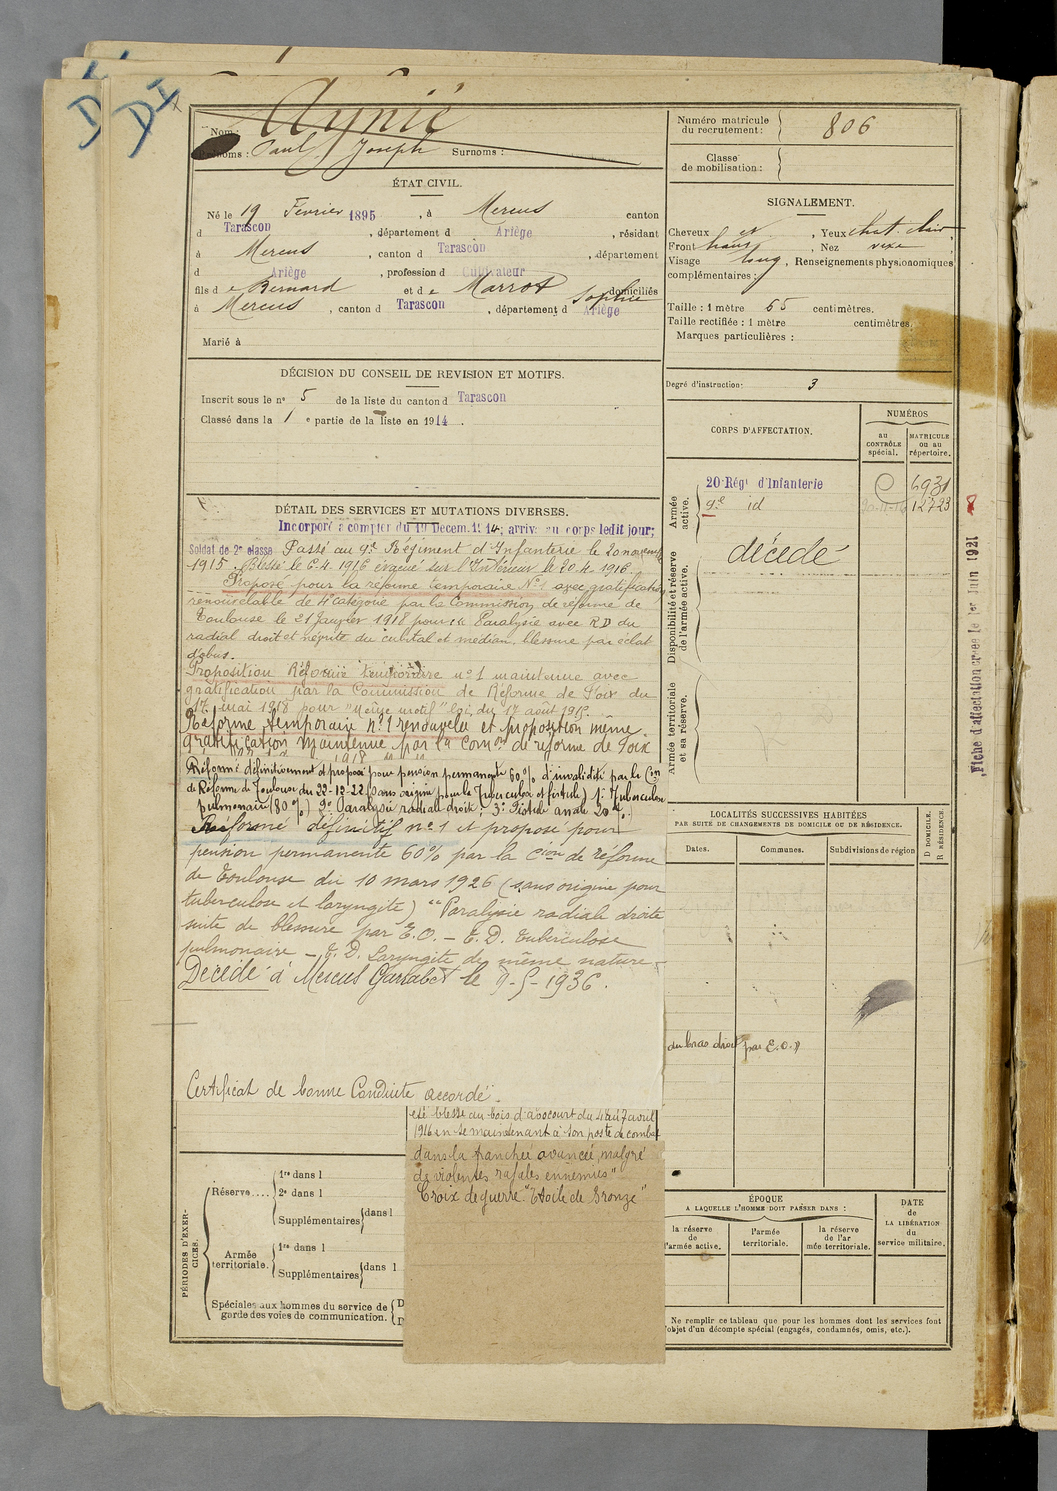 DI
DI
Nom: Aynié
Prénoms: Paul Joseph Surnoms:
ÉTAT CIVIL.
Né le 19 Février 1895, à Mercus canton
d Tarascon, département d Ariège, résidant
à Mercus, canton d Tarascon, département
d Ariège, profession d Cultivateur
fils d e Bernard et d e Marrot Sophie domiciliés
à Mercus, canton d Tarascon, département d Ariège
Marié à
DÉCISION DU CONSEIL DE REVISION ET MOTIFS.
Inscrit sous le n° 5 de la liste du canton d Tarascon
Classé dans la 1 e partie de la liste en 1914.
DÉTAIL DES SERVICES ET MUTATIONS DIVERSES.
Incorporé à compter du 19 Décem. 1914; arrivé au corps ledit jour;
Soldat de 2e classe Passé au 9e Régiment d'Infanterie le 20 novembre
1915. Blessé le 6.4.1916 évacué sur l'Intérieur le 20.4.1916.
Proposé pour la réforme temporaire N°1 avec gratification
renouvelable de 4e catégorie par la Commission de réforme de
Toulouse le 21 Janvier 1918 pour Paralysie avec RD du
radial droit et névrite du cubital et médian, blessure par éclat
d'obus.
Proposition Réforme temporaire n°1 maintenue avec
gratification par la Commission de Réforme de Foix du
17 mai 1918 pour "Même motif" loi du 17 août 1915.
Réforme temporaire n°1 renouvelée et proposition même
gratification maintenue par la Comon de réforme de Foix
1918
Réformé définitivement et proposé pour pension permanente 60% d'invalidité par la Con
de Réforme de Toulouse du 22-12-22 (sans origine pour la Tuberculose et fistule) 1° Tuberculose
pulmonaire (80%) 2° Paralysie radiale droite; 3° Fistule anale 20%.
Réformé définitif n°1 et proposé pour
pension permanente 60% par la Cion de réforme
de Toulouse du 10 mars 1926 (sans origine pour
tuberculose et laryngite) "Paralysie radiale droite
suite de blessure par E.O. - E.D. Tuberculose
pulmonaire - E.D. Laryngite de même nature
Décédé à Mercus Garrabet le 9-5-1936.
Certificat de bonne Conduite accordé.
été blessé au bois d'avocourt du 4 au 7 avril
1916 en se maintenant à son poste de combat
dans la tranchée avancée, malgré
de violentes rafales ennemies"
Croix de guerre "Etoile de Bronze"
PÉRIODES D'EXERCICES.
Réserve....
1re dans l
2e dans l
Supplémentaires dans l
Armée territoriale.
1re dans l
Supplémentaires dans l
Spéciales aux hommes du service de
garde des voies de communication.
Numéro matricule
du recrutement: 806
Classe
de mobilisation:
SIGNALEMENT.
Cheveux et, Yeux chat. clair
Front haut, Nez vexe
Visage long, Renseignements physionomiques
complémentaires:
Taille: 1 mètre 65 centimètres.
Taille rectifiée: 1 mètre centimètres.
Marques particulières:
Degré d'instruction: 3
CORPS D'AFFECTATION.
NUMÉROS
au
CONTRÔLE
spécial.
MATRICULE
ou au
répertoire.
Armée
active.
20 Régt d'Infanterie 6931
9e id 12723
Disponibilité et réserve
de l'armée active.
décédé
Armée territoriale
et sa réserve.
Fiche d'affectation créée le 1er Juin 1921
LOCALITÉS SUCCESSIVES HABITÉES
PAR SUITE DE CHANGEMENTS DE DOMICILE OU DE RÉSIDENCE.
D DOMICILE.
R RÉSIDENCE
Dates.
Communes.
Subdivisions de région
du bras droit par E.O.)
ÉPOQUE
A LAQUELLE L'HOMME DOIT PASSER DANS:
la réserve
de
l'armée active.
l'armée
territoriale.
la réserve
de l'ar
mée territoriale.
DATE
de
LA LIBÉRATION
du
service militaire.
Ne remplir ce tableau que pour les hommes dont les services font
l'objet d'un décompte spécial (engagés, condamnés, omis, etc.).